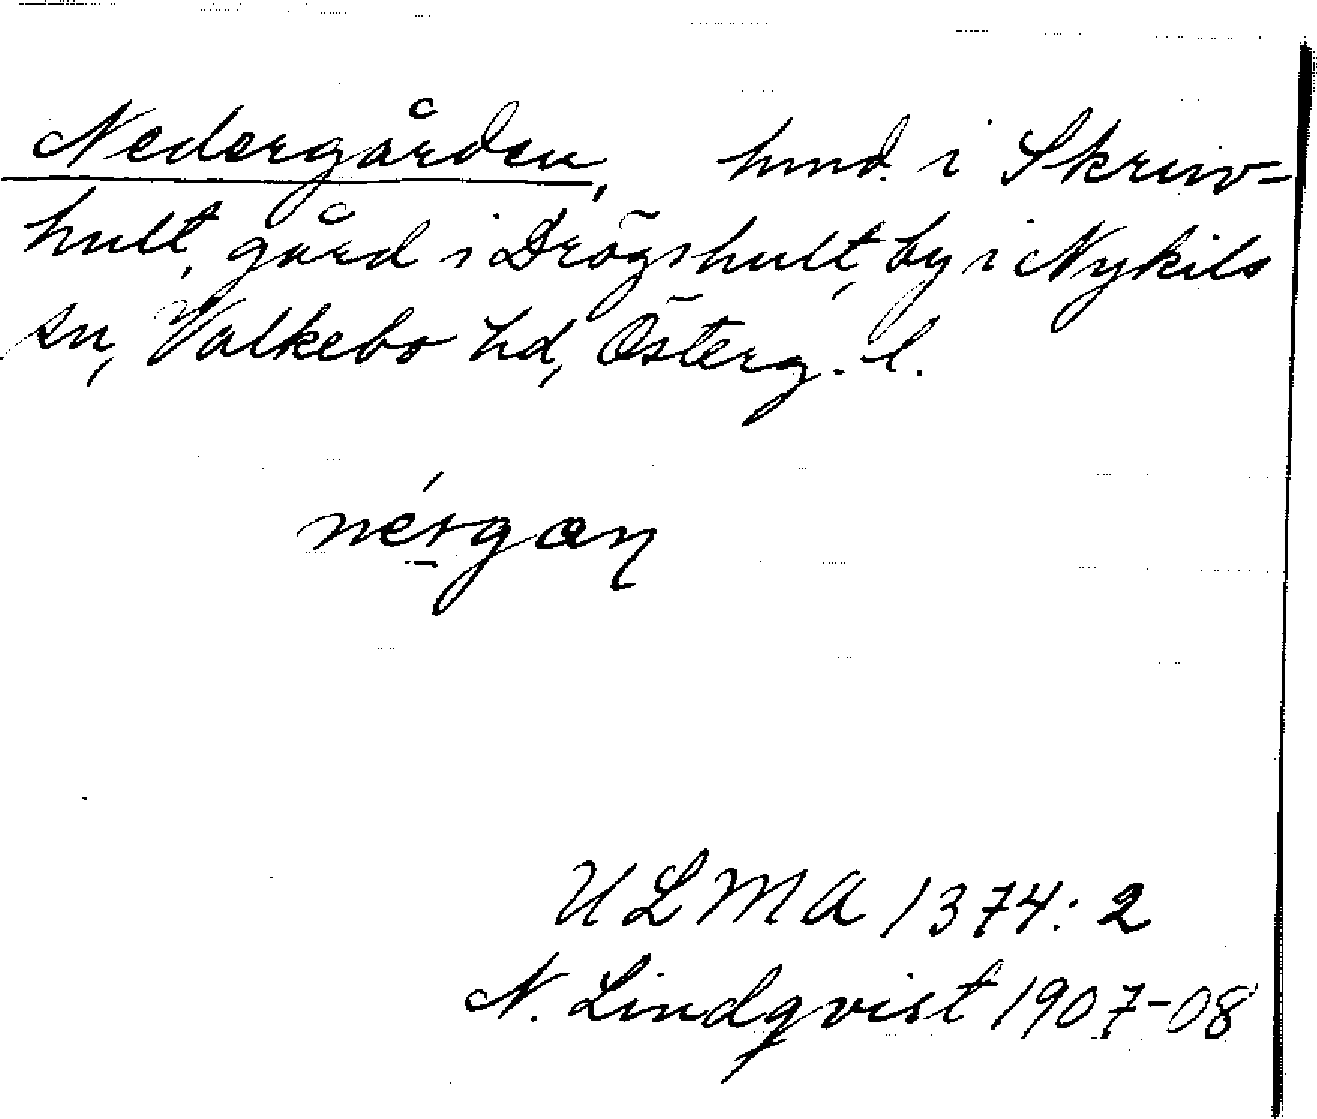 Nedergården, hmd. i Skruv-
hult, gård i Drögshult, by i Nykils
sn, Valkebo hd, Österg. l.
nérgan
ULMA 1374:2
N. Lindqvist 1907-08